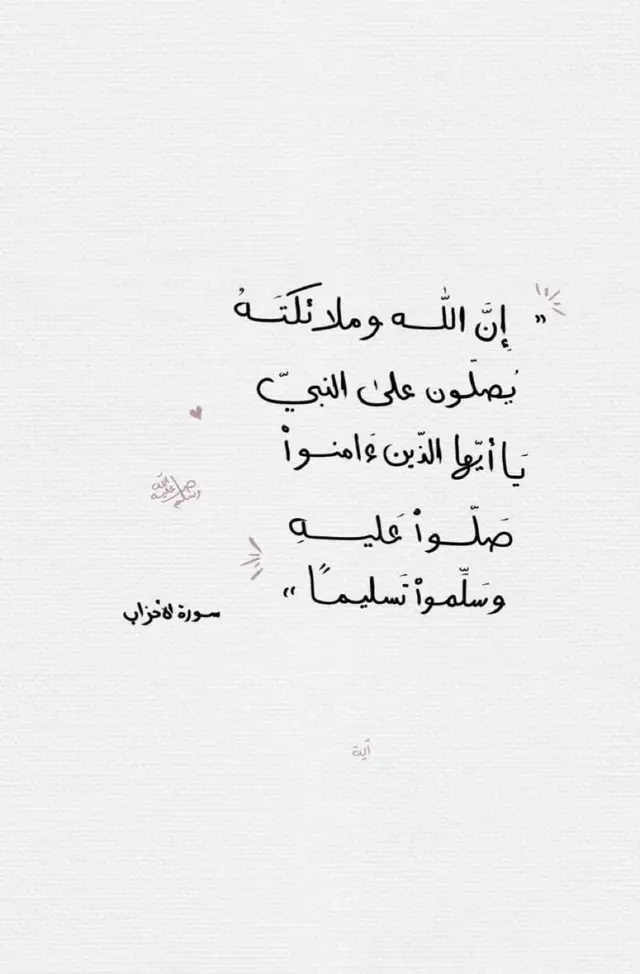 « إِنَّ اللّٰه وملائكتَهُ
يُصلّون علىٰ النبيّ
يَا أيّها الذّين ءَامنواْ
صَلّواْ عَليهِ
وسَلِّمواْ تَسليمًا »
سورة الأحزاب
صلى الله عليه وسلم
آية